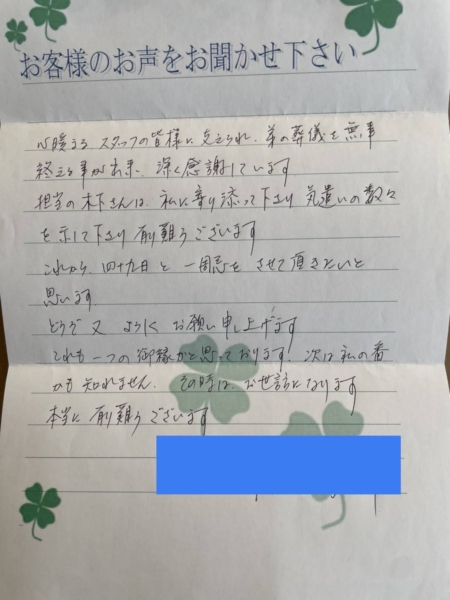 お客様のお声をお聞かせ下さい
心暖まるスタッフの皆様に支えられ、弟の葬儀を無事
終える事が出来、深く感謝しています
担当の木下さんは、私に寄り添って下さり気遣いの数々
を示して下さり有難うございます
これから四十九日と一周忌をさせて頂きたいと
思います
どうぞ又よろしくお願い申し上げます
これも一つの御縁かと思っております。次は私の番
かも知れません。その時は、お世話になります
本当に有難うございます